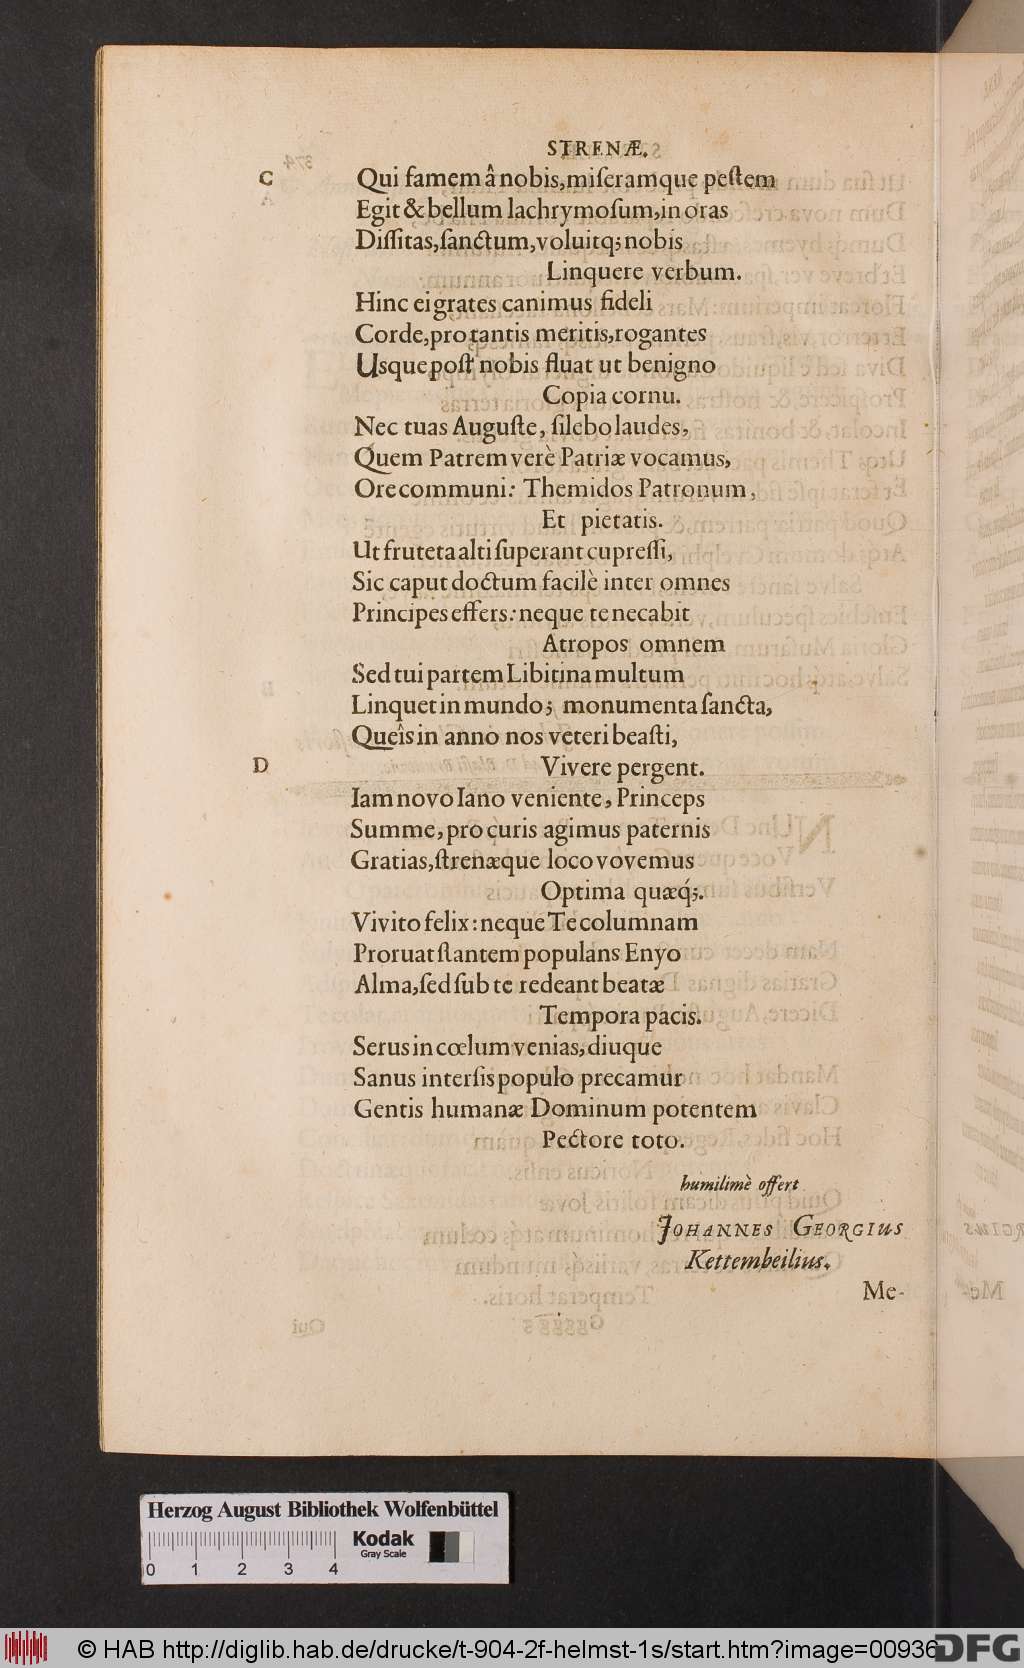 STRENÆ.
C Qui famem â nobis, miſeramque peſtem
Egit & bellum lachrymoſum, in oras
Diſſitas, ſanctum, voluitq; nobis
Linquere verbum.
Hinc ei grates canimus fideli
Corde, pro tantis meritis, rogantes
Usque poſt nobis fluat ut benigno
Copia cornu.
Nec tuas Auguſte, ſilebo laudes,
Quem Patrem verè Patriæ vocamus,
Ore communi: Themidos Patronum,
Et pietatis.
Ut fruteta alti ſuperant cupreſſi,
Sic caput doctum facilè inter omnes
Principes effers: neque te necabit
Atropos omnem
Sed tui partem Libitina multum
Linquet in mundo; monumenta ſancta,
Queîs in anno nos veteri beaſti,
D Vivere pergent.
Iam novo Iano veniente, Princeps
Summe, pro curis agimus paternis
Gratias, ſtrenæque loco vovemus
Optima quæq́;.
Vivito felix: neque Te columnam
Proruat ſtantem populans Enyo
Alma, ſed ſub te redeant beatæ
Tempora pacis.
Serus in cœlum venias, diuque
Sanus interſis populo precamur
Gentis humanæ Dominum potentem
Pectore toto.
humilimè offert
JOHANNES GEORGIUS
Kettembeilius.
Me-
Herzog August Bibliothek Wolfenbüttel
Kodak
Gray Scale
0 1 2 3 4
© HAB http://diglib.hab.de/drucke/t-904-2f-helmst-1s/start.htm?image=00936
DFG